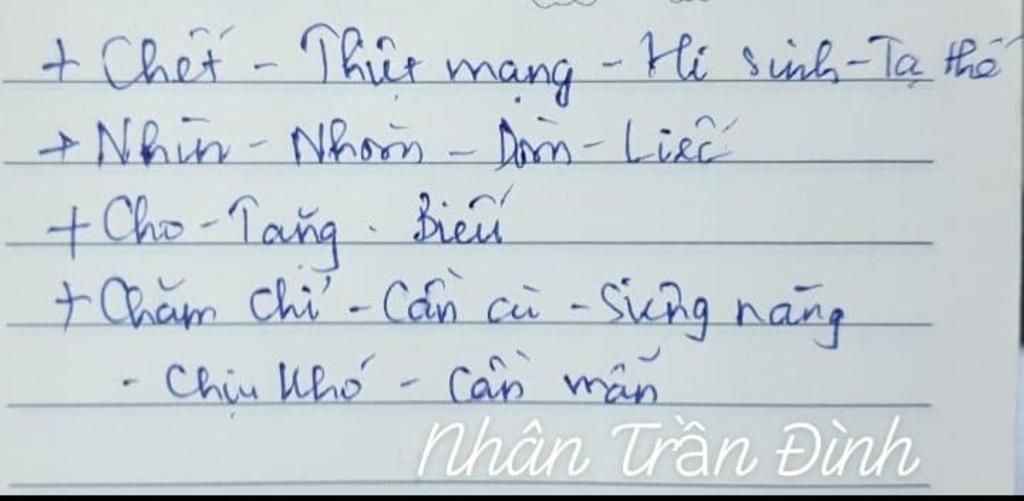 + Chết - Thiệt mạng - Hi sinh - Tạ thế
+ Nhìn - Nhòm - Dòm - Liếc
+ Cho - Tặng - Biếu
+ Chăm chỉ - Cần cù - Siêng năng
- Chịu khó - Cần mẫn
Nhân Trần Đình